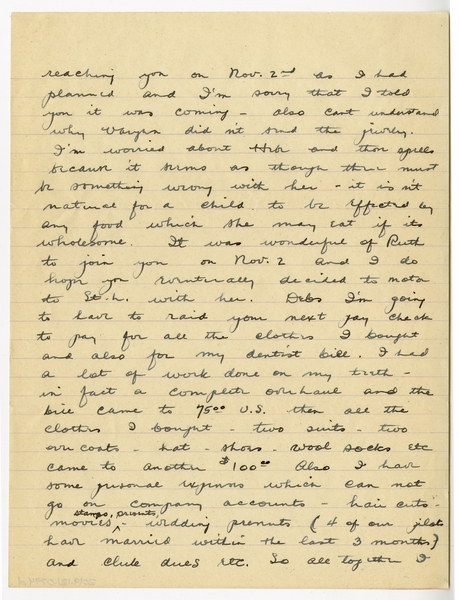 reaching you on Nov. 2nd as I had
planned and I'm sorry that I told
you it was coming - also cant understand
why did n't send the
I'm worried about and those spells
because it seems as though there must
be something wrong with her - it is n't
natural for a child to be effected by
any food which she may eat if its
wholesome. It was wonderful of Ruth
to join you on Nov. 2 and I do
hope you eventually decided to motor
to with her. Debs I'm going
to have to raid your next pay check
to pay for all the clothes I bought
and also for my dentist bill. I had
a lot of work done on my teeth -
in fact a complete overhaul and the
bill came to 75.00 U.S. then all the
clothes I bought - two suits - two
overcoats - hat - shoes - wool socks etc
came to another $100.00 Also I have
some personal expenses which can not
go on company accounts - hair cuts -
stamps, presents,
movies ^ wedding presents (4 of our pilots
have married within the last 3 months)
and club dues etc. So all together I